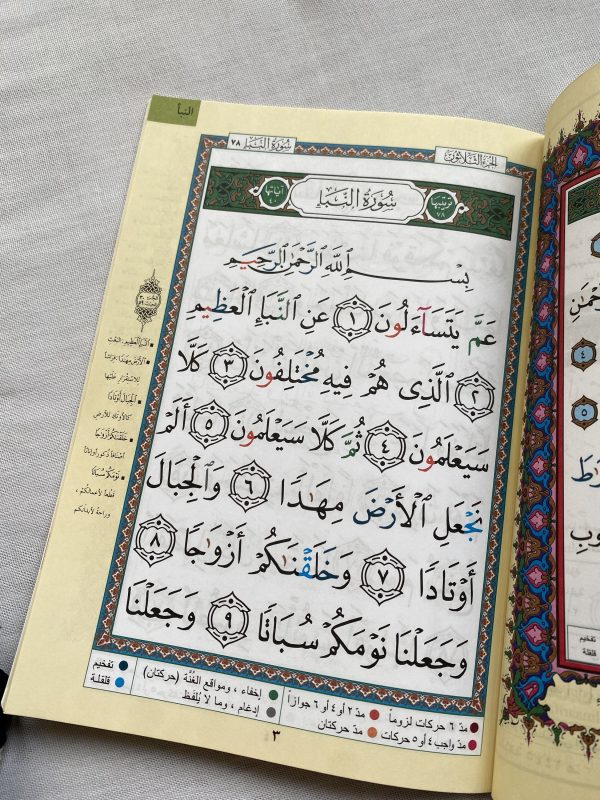 النبأ
الجزء الثلاثون
سورة النبإ ٧٨
ترتيبها ٧٨
سُورَةُ النَّبَإِ
آياتها ٤٠
بِسْمِ ٱللَّهِ ٱلرَّحْمَٰنِ ٱلرَّحِيمِ
عَمَّ يَتَسَآءَلُونَ ١ عَنِ ٱلنَّبَإِ ٱلْعَظِيمِ
٢ ٱلَّذِى هُمْ فِيهِ مُخْتَلِفُونَ ٣ كَلَّا
سَيَعْلَمُونَ ٤ ثُمَّ كَلَّا سَيَعْلَمُونَ ٥ أَلَمْ
نَجْعَلِ ٱلْأَرْضَ مِهَٰدًا ٦ وَٱلْجِبَالَ
أَوْتَادًا ٧ وَخَلَقْنَٰكُمْ أَزْوَٰجًا ٨
وَجَعَلْنَا نَوْمَكُمْ سُبَاتًا ٩ وَجَعَلْنَا
النَّبَإِ الْعَظِيمِ: البعث
الْأَرْضَ مِهَادًا: فراشاً
للاستقرار عليها
الْجِبَالَ أَوْتَادًا
كالأوتاد للأرض
خَلَقْنَاكُمْ أَزْوَاجًا
أصنافاً ذكوراً وإناثاً
نَوْمَكُمْ سُبَاتًا
قطعاً لأعمالكم،
وراحة لأبدانكم
مدّ ٦ حركات لزوماً
مدّ ٢ أو ٤ أو ٦ جوازاً
إخفاء، ومواقع الغُنَّة (حركتان)
تفخيم
مدّ واجب ٤ أو ٥ حركات
مدّ حركتان
إدغام، وما لا يُلفَظ
قلقلة
٣
٤
٥
تفخيم
قلقلة